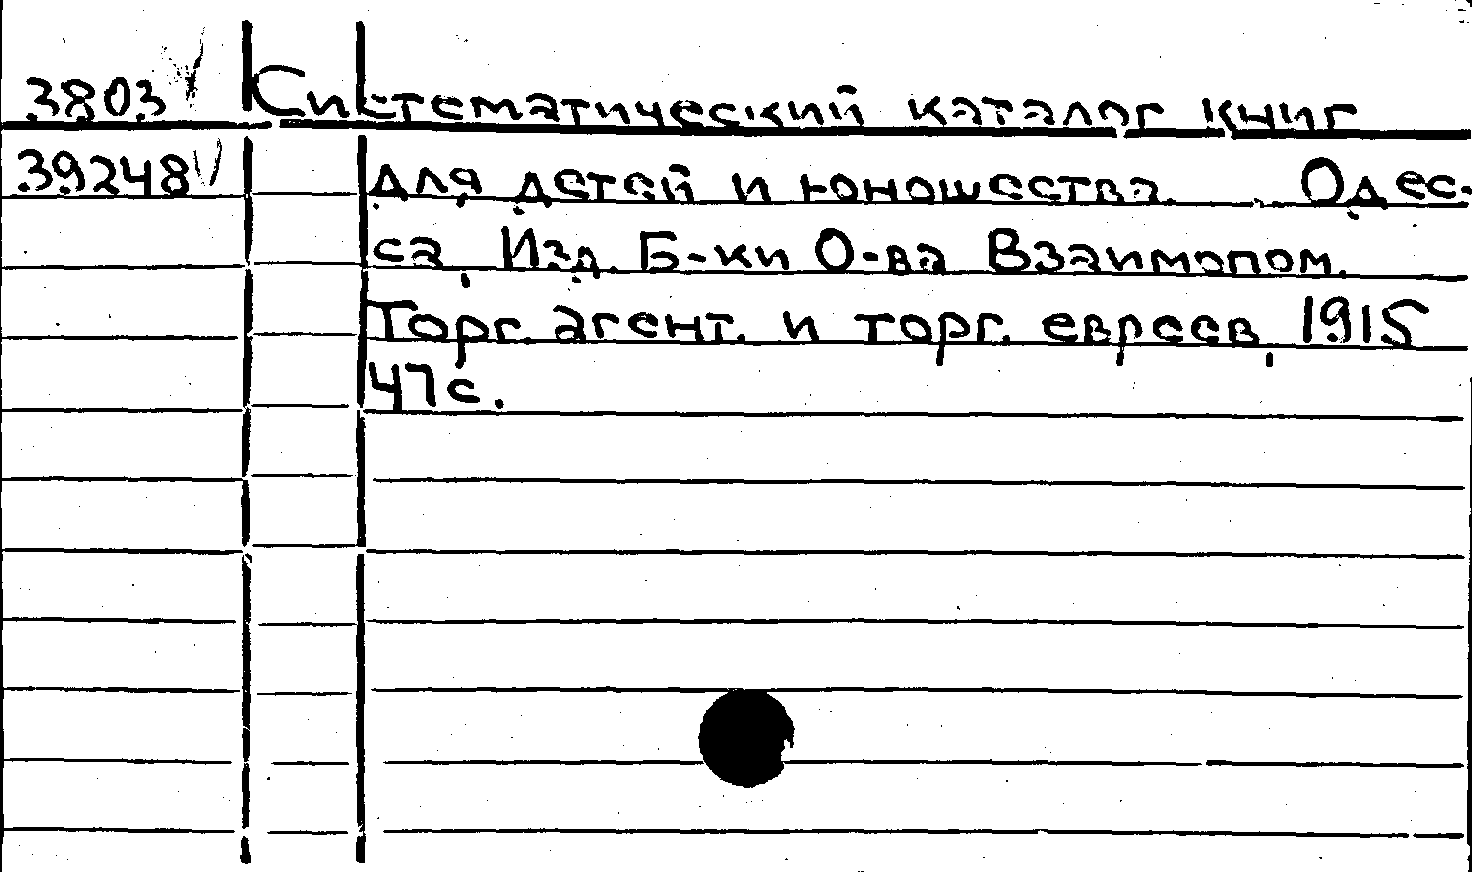 3803 Систематический каталог книг
39248 для детей и юношества. Одес-
са, Изд. Б-ки О-ва Взаимопом.
Торг. агент. и торг. евреев, 1915
47 с.